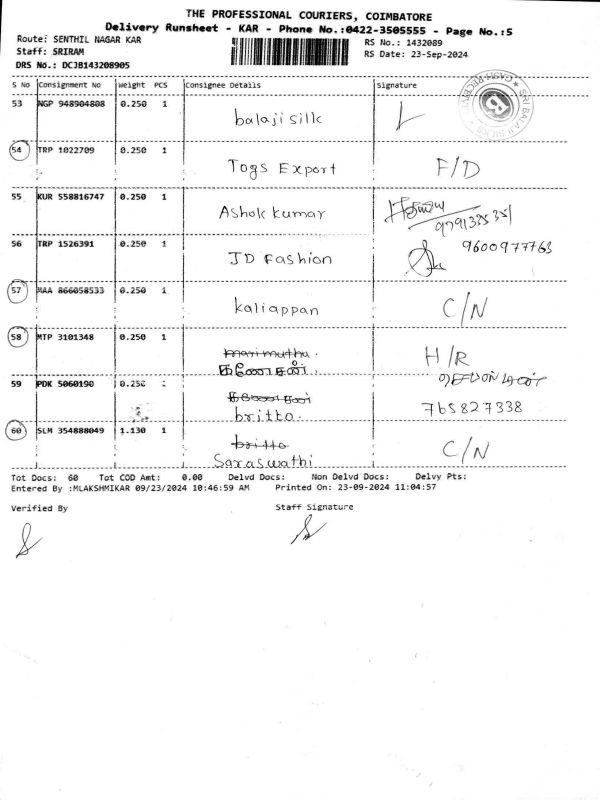 THE PROFESSIONAL COURIERS, COIMBATORE
Delivery Runsheet - KAR - Phone No.:0422-3505555 - Page No.:5
Route: SENTHIL NAGAR KAR
RS No.: 1432089
Staff: SRIRAM
RS Date: 23-Sep-2024
DRS No.: DCJB143208905
S No Consignment No Weight PCS Consignee Details Signature
53 NGP 948904808 0.250 1 balaji silk
54 TRP 1022709 0.250 1 Togs Export F/D
55 KUR 558816747 0.250 1 Ashok kumar
56 TRP 1526391 0.250 1 JD Fashion 9600977763
57 MAA 866058533 0.250 1 kaliappan C/N
58 MTP 3101348 0.250 1 marimuthu. H/R
கணேசன்.
59 PDK 5060190 0.250 1 கணேசன் 765827338
britto.
60 SLM 354888049 1.130 1 britto C/N
Saraswathi
Tot Docs: 60 Tot COD Amt: 0.00 Delvd Docs: Non Delvd Docs: Delvy Pts:
Entered By :MLAKSHMIKAR 09/23/2024 10:46:59 AM Printed On: 23-09-2024 11:04:57
Verified By Staff Signature